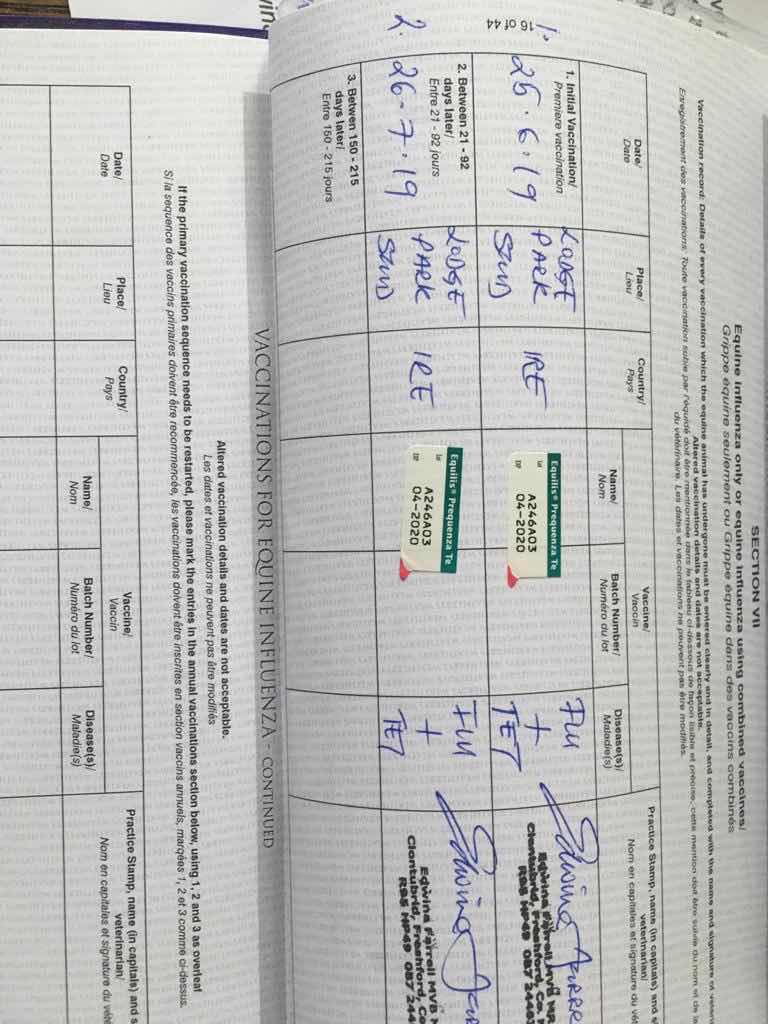 SECTION VII
Equine influenza only or equine influenza using combined vaccines/
Grippe équine seulement ou Grippe équine dans des vaccins combinés
Vaccination record: Details of every vaccination which the equine animal has undergone must be entered clearly and in detail, and completed with the name and signature of
Altered vaccination details and dates are not acceptable.
Enregistrement des vaccinations: Toute vaccination subie par l'équidé doit être mentionnée dans le tableau ci-dessous de façon lisible et précise, cette mention doit être suivie du nom et de la
du vétérinaire. Les dates et vaccinations ne peuvent pas être modifiés.
Date/
Date
Place/
Lieu
Country/
Pays
Vaccine/
Vaccin
Name/
Nom
Batch Number/
Numéro du lot
Disease(s)/
Maladie(s)
Practice Stamp, name (in capitals) and
veterinarian/
Nom en capitales et signature du
1. Initial Vaccination/
Premiere vaccination
1. 25.6.19
LODGE
PARK
STUD
IRE
Equilis® Prequenza Te
A246A03
04-2020
FLU
+
TET
Edwina Farrell MVB
Clontubrid, Freshford, Co.
R95 HP49 087
2. Between 21 - 92
days later/
Entre 21 - 92 jours
2. 26-7.19
LODGE
PARK
STUD
IRE
Equilis® Prequenza Te
A246A03
04-2020
FLU
+
TET
Edwina Farrell MVB
Clontubrid, Freshford, Co.
R95 HP49 087 244
3. Betwen 150 - 215
days later/
Entre 150 - 215 jours
16 of 44
VACCINATIONS FOR EQUINE INFLUENZA - CONTINUED
Altered vaccination details and dates are not acceptable.
Les dates et vaccinations ne peuvent pas être modifiés
If the primary vaccination sequence needs to be restarted, please mark the entries in the annual vaccinations section below, using 1, 2 and 3 as overleaf
Si la sequence des vaccins primaires doivent être recommencée, les vaccinations doivent être inscrites en section vaccins annuels, marqées 1, 2 et 3 comme ci-dessus.
Date/
Date
Place/
Lieu
Country/
Pays
Vaccine/
Vaccin
Name/
Nom
Batch Number/
Numéro du lot
Disease(s)/
Maladie(s)
Practice Stamp, name (in capitals) and
veterinarian/
Nom en capitales et signature du